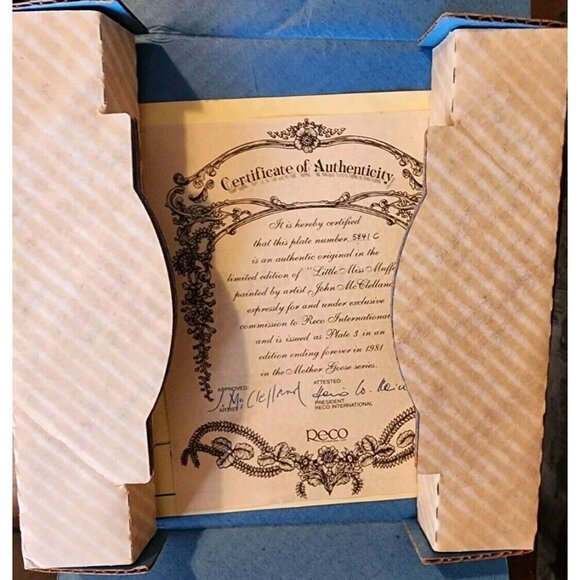 Certificate of Authenticity
It is hereby certified
that this plate number 5841 C
is an authentic original in the
limited edition of "Little Miss Muffe
painted by artist John McClelland
expressly for and under exclusive
commission to Reco International
and is issued as Plate 3 in an
edition ending forever in 1981
in the Mother Goose series.
APPROVED
J. McClelland
ARTIST
ATTESTED
PRESIDENT
RECO INTERNATIONAL
Reco